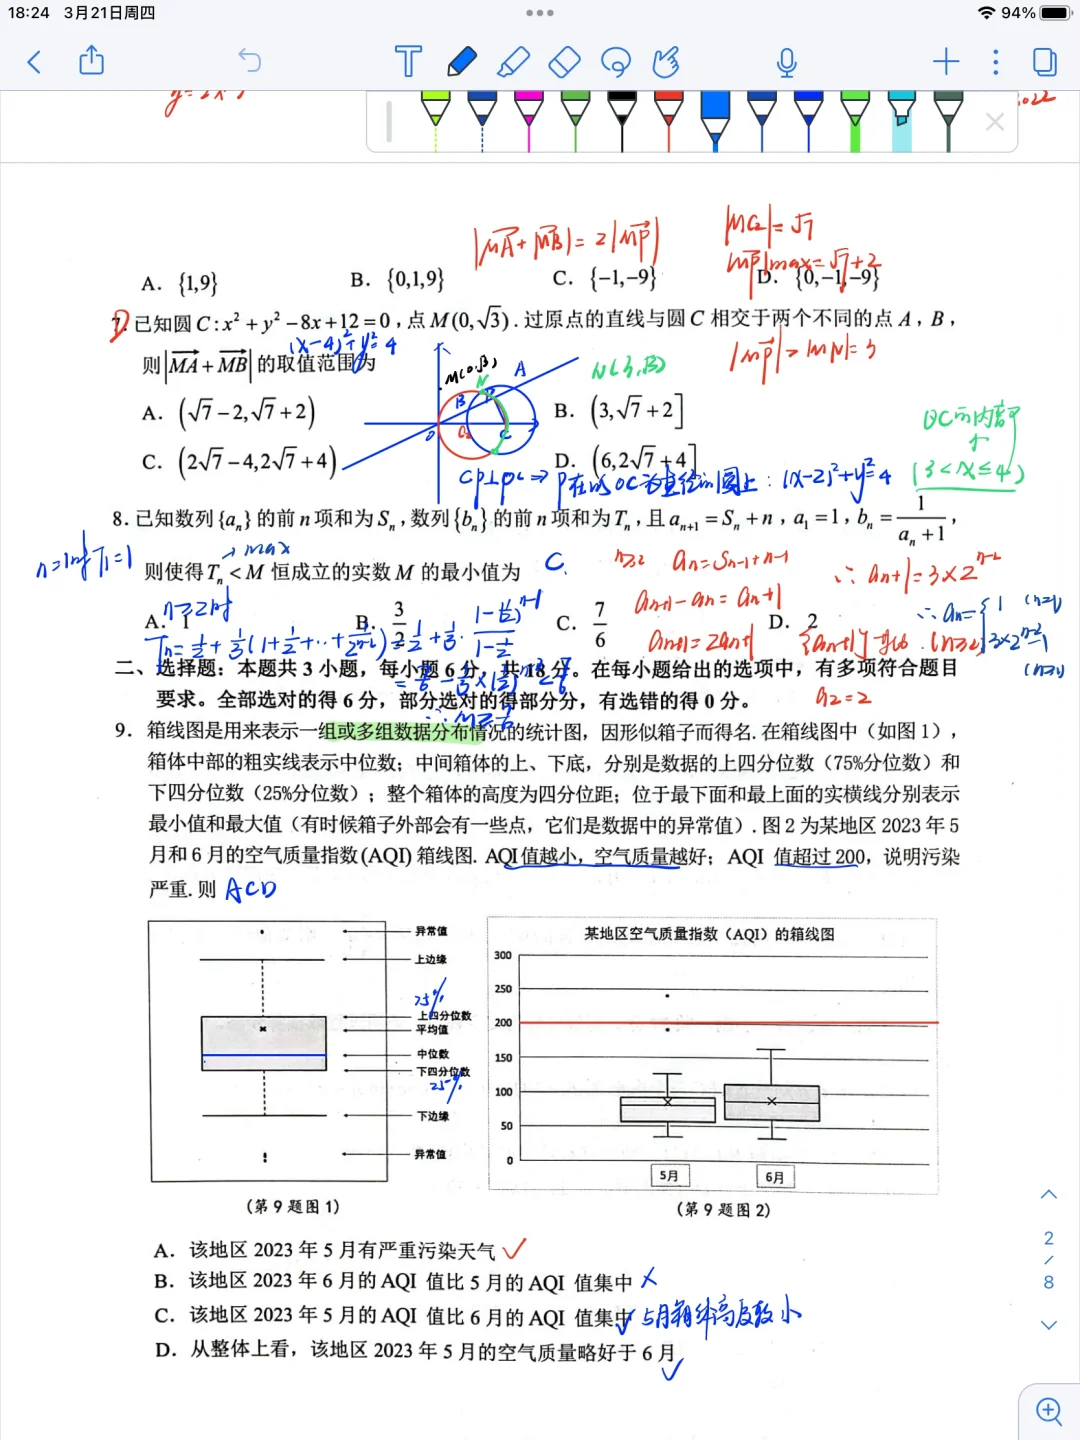 18:24 3月21日周四
94%
|MA+MB|=2|MP|
|MC₂|=√7
|MP|max=√7+2
A. {1,9} B. {0,1,9} C. {-1,-9} D. {0,-1,-9}
7. 已知圆 C:x²+y²-8x+12=0,点 M(0,√3).过原点的直线与圆 C 相交于两个不同的点 A,B,
(x-4)²+y²=4
则|MA+MB|的取值范围为
|MP|>|MN|=3
M(0,√3)
N
A
B
P
O
C₂
C
N(3,√3)
A. (√7-2,√7+2) B. (3,√7+2]
⊙C的内部
(3<x≤4)
C. (2√7-4,2√7+4) D. (6,2√7+4]
CP⊥PO⇒P在以OC为直径的圆上:(x-2)²+y²=4
8. 已知数列{aₙ}的前 n 项和为 Sₙ,数列{bₙ}的前 n 项和为 Tₙ,且 aₙ₊₁=Sₙ+n,a₁=1,bₙ=1/(aₙ+1),
n=1时T₁=1
max
则使得Tₙ<M 恒成立的实数 M 的最小值为
C.
n≥2 aₙ=Sₙ₋₁+n-1
∴aₙ+1=3×2ⁿ⁻²
aₙ₊₁-aₙ=aₙ+1
∴aₙ={1 (n=1)
3×2ⁿ⁻²-1 (n≥2)
n≥2时
A. 1 B. 3/2 C. 7/6 D. 2
Tₙ=1/2+1/3(1+1/2+…+1/2ⁿ⁻²)=1/2+1/3·(1-(1/2)ⁿ⁻¹)/(1-1/2)
aₙ₊₁=2aₙ+1
(n≥2)
二、选择题:本题共 3 小题,每小题 6 分,共 18 分。在每小题给出的选项中,有多项符合题目
要求。全部选对的得 6 分,部分选对的得部分分,有选错的得 0 分。
a₂=2
∴M≥7/6
9. 箱线图是用来表示一组或多组数据分布情况的统计图,因形似箱子而得名.在箱线图中(如图1),
箱体中部的粗实线表示中位数;中间箱体的上、下底,分别是数据的上四分位数(75%分位数)和
下四分位数(25%分位数);整个箱体的高度为四分位距;位于最下面和最上面的实横线分别表示
最小值和最大值(有时候箱子外部会有一些点,它们是数据中的异常值).图2为某地区 2023 年 5
月和 6 月的空气质量指数(AQI)箱线图. AQI 值越小,空气质量越好;AQI 值超过 200,说明污染
严重.则 ACD
异常值
上边缘
75%
上四分位数
平均值
中位数
下四分位数
25%
下边缘
异常值
(第 9 题图 1)
某地区空气质量指数(AQI)的箱线图
300
250
200
150
100
50
0
5月 6月
(第 9 题图 2)
A. 该地区 2023 年 5 月有严重污染天气
B. 该地区 2023 年 6 月的 AQI 值比 5 月的 AQI 值集中
C. 该地区 2023 年 5 月的 AQI 值比 6 月的 AQI 值集中 5月箱体高度数小
D. 从整体上看,该地区 2023 年 5 月的空气质量略好于 6 月
2
/
8